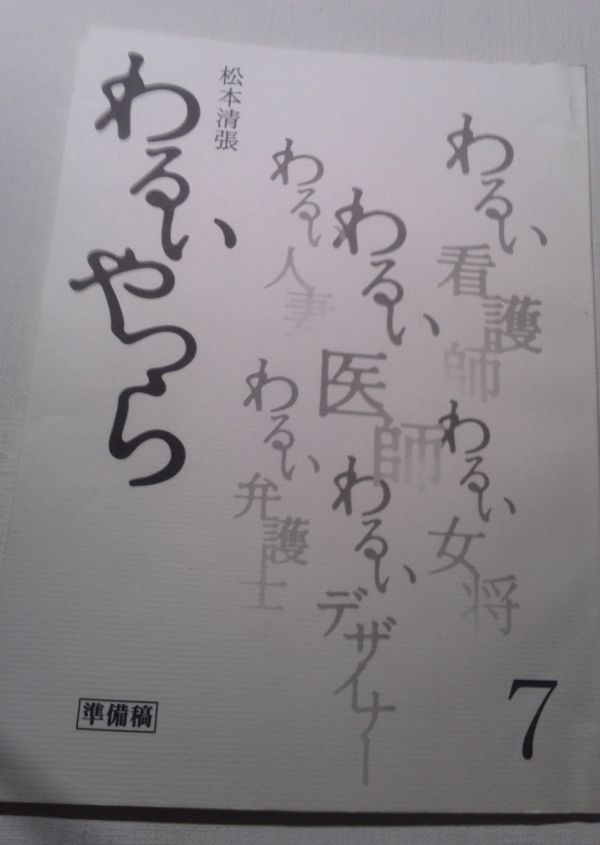 松本清張
わるいやつら
わるい看護師
わるい医師
わるい人妻
わるい女将
わるいデザイナー
わるい弁護士
準備稿
7